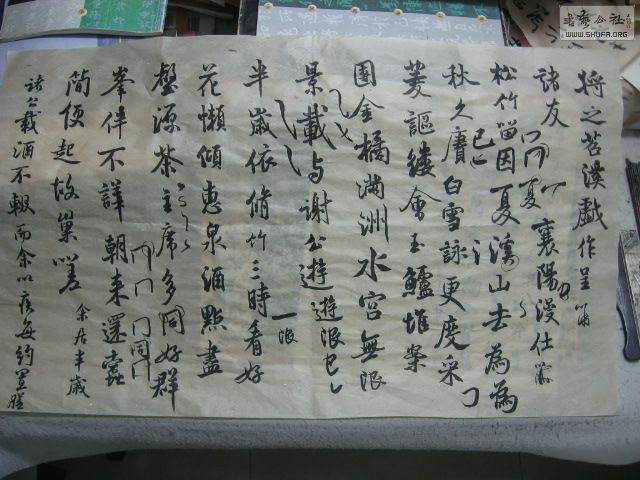 将之苕溪戯作呈
諸友 夏 襄陽漫仕黻
松竹留因夏溪山去為為
秋久賡白雪詠更度采
菱謳縷會玉鱸堆案
團金橘滿洲水宮無限
景載与謝公遊遊限
半歲依脩竹三時看好一限
花懶傾惠泉酒點盡
壑源茶主席多同好群
峯伴不譁朝来還蠹
簡便起故巢嗟余居半歲
諸公載酒不輟而余以疾每約置膳
書藝公社
WWW.SHUFA.ORG